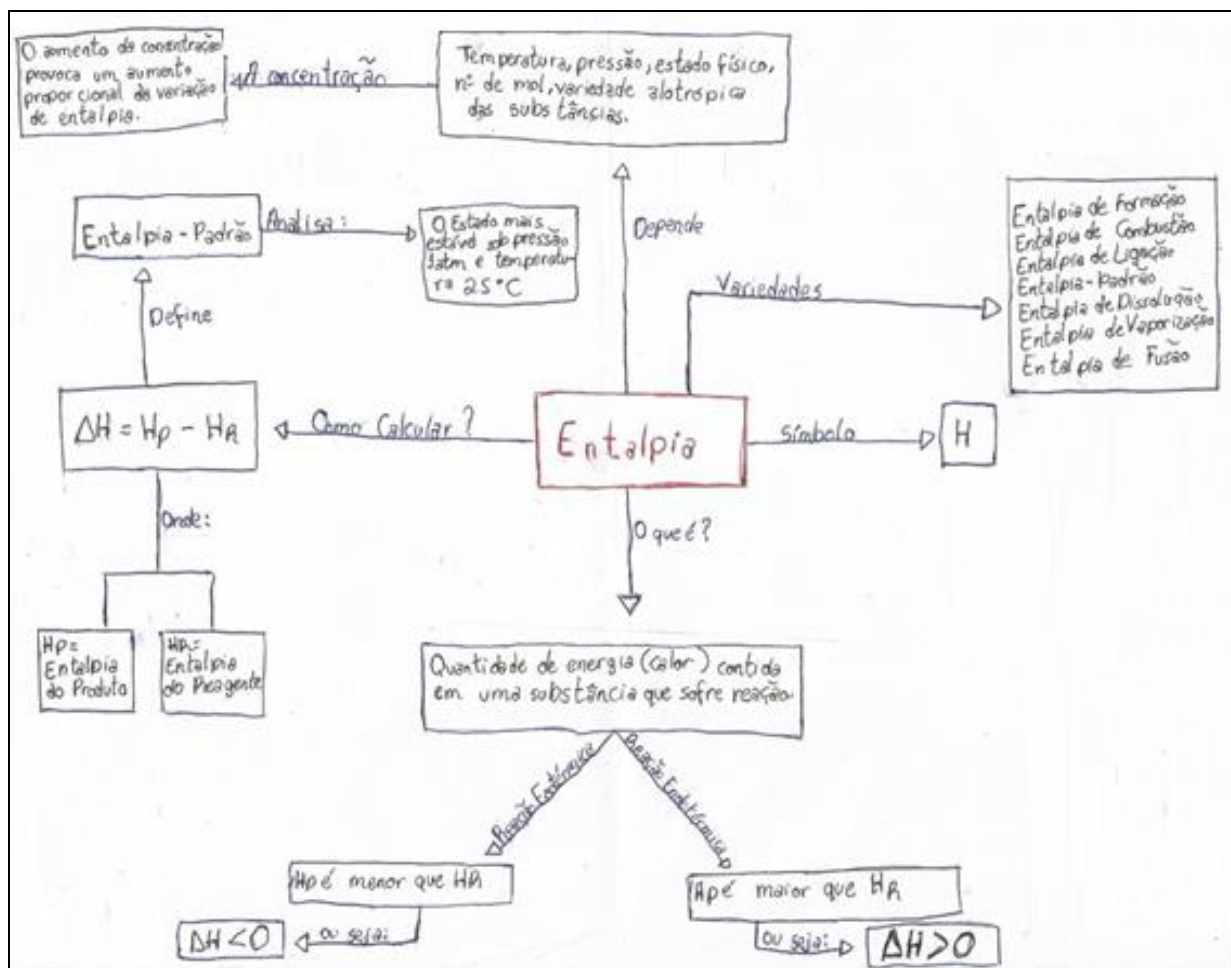 O aumento da concentração
provoca um aumento
proporcional da variação
de entalpia.
A concentração
Temperatura, pressão, estado físico,
nº de mol, variedade alotropica
das substâncias.
Depende
Entalpia-Padrão
Analisa:
O Estado mais
estável sob pressão
1atm e temperatu-
ra 25°C
Define
Variedades
Entalpia de Formação
Entalpia de Combustão
Entalpia de Ligação
Entalpia-Padrão
Entalpia de Dissolução
Entalpia de Vaporização
Entalpia de Fusão
ΔH = HP - HR
Como Calcular?
Entalpia
Símbolo
H
Onde:
O que é?
HP=
Entalpia
do Produto
HR=
Entalpia
do Reagente
Quantidade de energia (calor) contida
em uma substância que sofre reação.
Reação Exotérmica
Reação Endotérmica
HP é menor que HR
HP é maior que HR
ou seja:
ΔH<0
ou seja:
ΔH>0